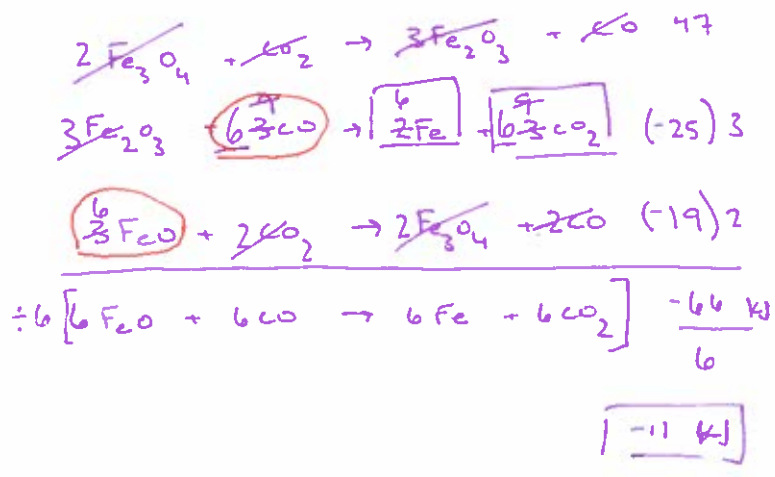 2 Fe₃O₄ + CO₂ → 3Fe₂O₃ + CO 47
3Fe₂O₃ + 6 3 9 CO → 6 2Fe + 6 3 9 CO₂ (-25) 3
6 3 FeO + 2CO₂ → 2Fe₃O₄ + 2CO (-19) 2
÷6 [6 FeO + 6CO → 6 Fe + 6CO₂] -66 kJ
6
-11 kJ